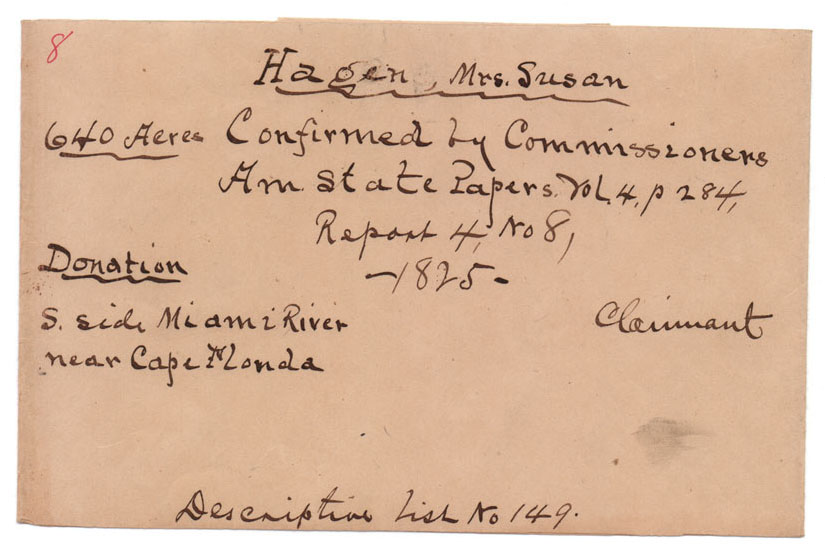 8
Hagen, Mrs. Susan
640 Acres Confirmed by Commissioners
Am. State Papers. Vol. 4, p 284,
Report 4, No 8,
Donation
-1825-
S. side Miami River
Claimant
near Cape Florida
Descriptive List No 149.